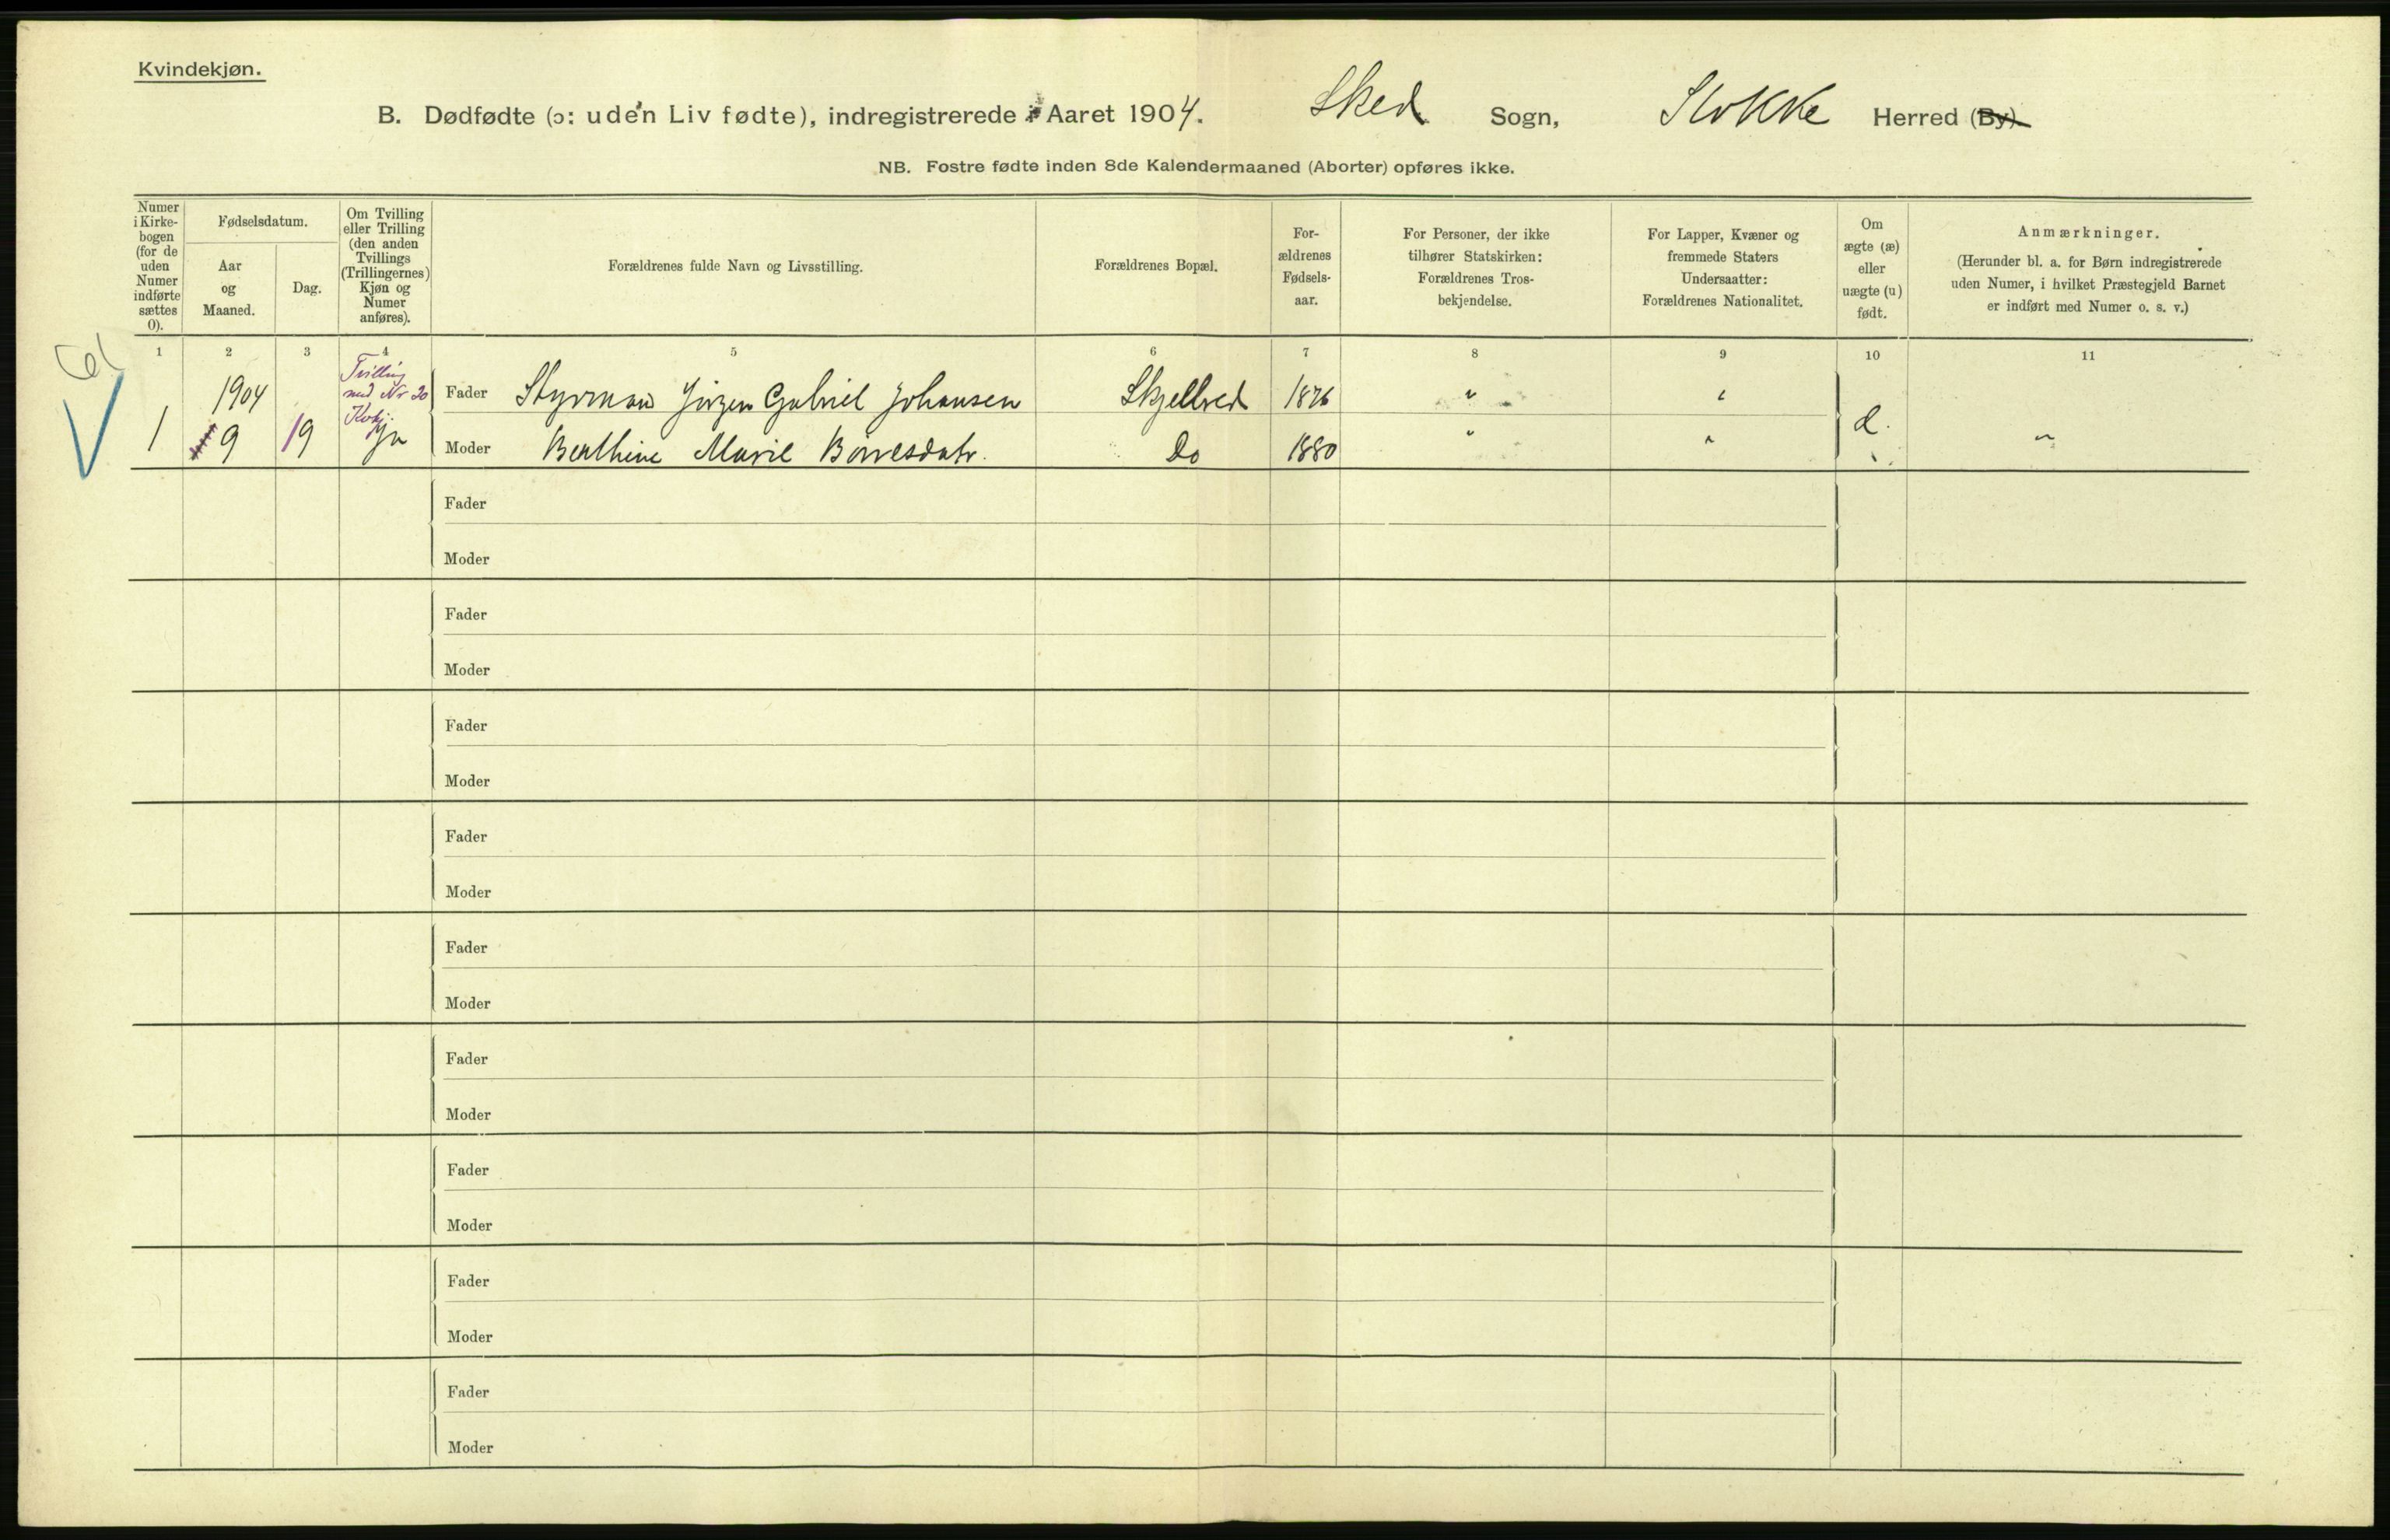 Kvindekjøn.
B. Dødfødte (ɔ: uden Liv fødte), indregistrerede i Aaret 1904. Skee Sogn, Stokke Herred (By).
NB. Fostre fødte inden 8de Kalendermaaned (Aborter) opføres ikke.
Numer i Kirke-bogen (for de uden Numer indførte sættes 0).
Fødselsdatum.
Aar og Maaned.
Dag.
Om Tvilling eller Trilling (den anden Tvillings (Trillingernes) Kjøn og Numer anføres).
Forældrenes fulde Navn og Livsstilling.
Forældrenes Bopæl.
For-ældrenes Fødsels-aar.
For Personer, der ikke tilhører Statskirken: Forældrenes Tros-bekjendelse.
For Lapper, Kvæner og fremmede Staters Undersaatter: Forældrenes Nationalitet.
Om ægte (æ) eller uægte (u) født.
Anmærkninger.
(Herunder bl. a. for Børn indregistrerede uden Numer, i hvilket Præstegjeld Barnet er indført med Numer o. s. v.)
1 2 3 4 5 6 7 8 9 10 11
Tvilling
1904 med Nr 20 Fader Styrmand Jörgen Gabriel Johansen Skjellred 1876 " "
Kvkj.
1 9 19 Ja Moder Berthine Marie Börresdatr. Do 1880 " " "
Fader
Moder
Fader
Moder
Fader
Moder
Fader
Moder
Fader
Moder
Fader
Moder
Fader
Moder
Fader
Moder
Fader
Moder